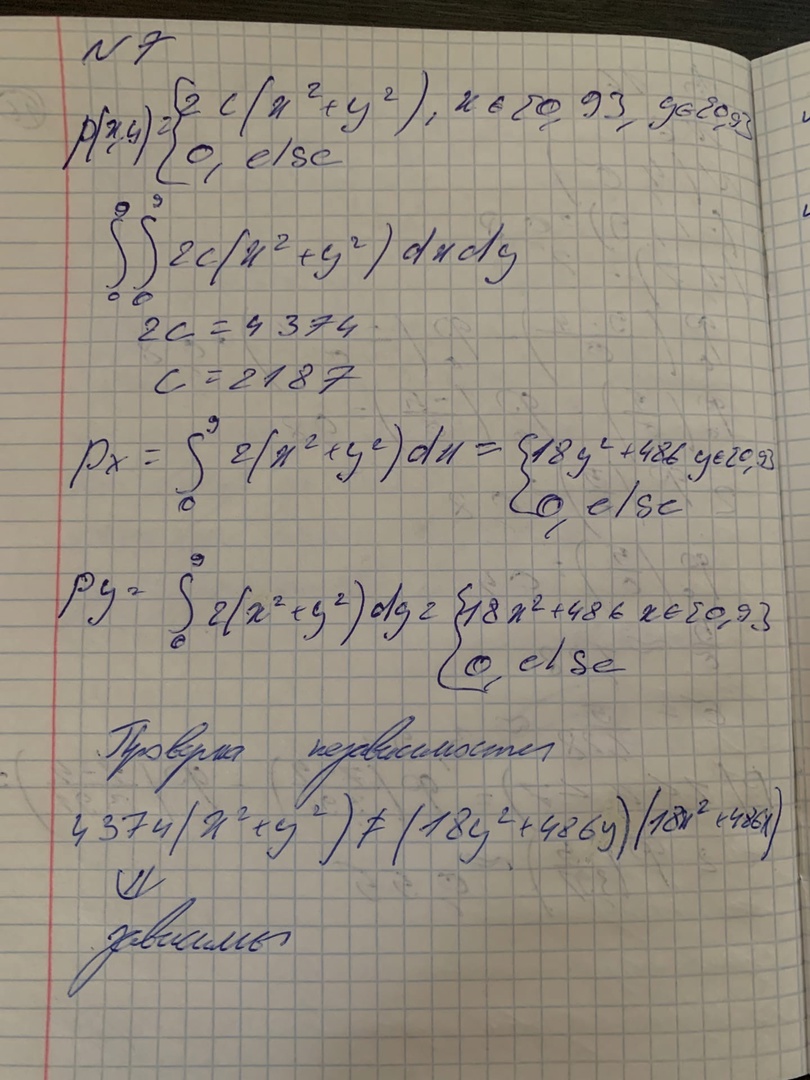 N 7
p(x,y) = {2c(x²+y²), x∈[0,9], y∈[0,9]
{0, else
∫₀⁹ ∫₀⁹ 2c(x²+y²) dxdy
2c = 4374
c = 2187
px = ∫₀⁹ 2(x²+y²)dx = {18y²+486 y∈[0,9]
{0, else
py = ∫₀⁹ 2(x²+y²)dy = {18x²+486 x∈[0,9]
{0, else
Проверка независимости
4374(x²+y²) ≠ (18y²+486y)(18x²+486x)
⇓
зависимы